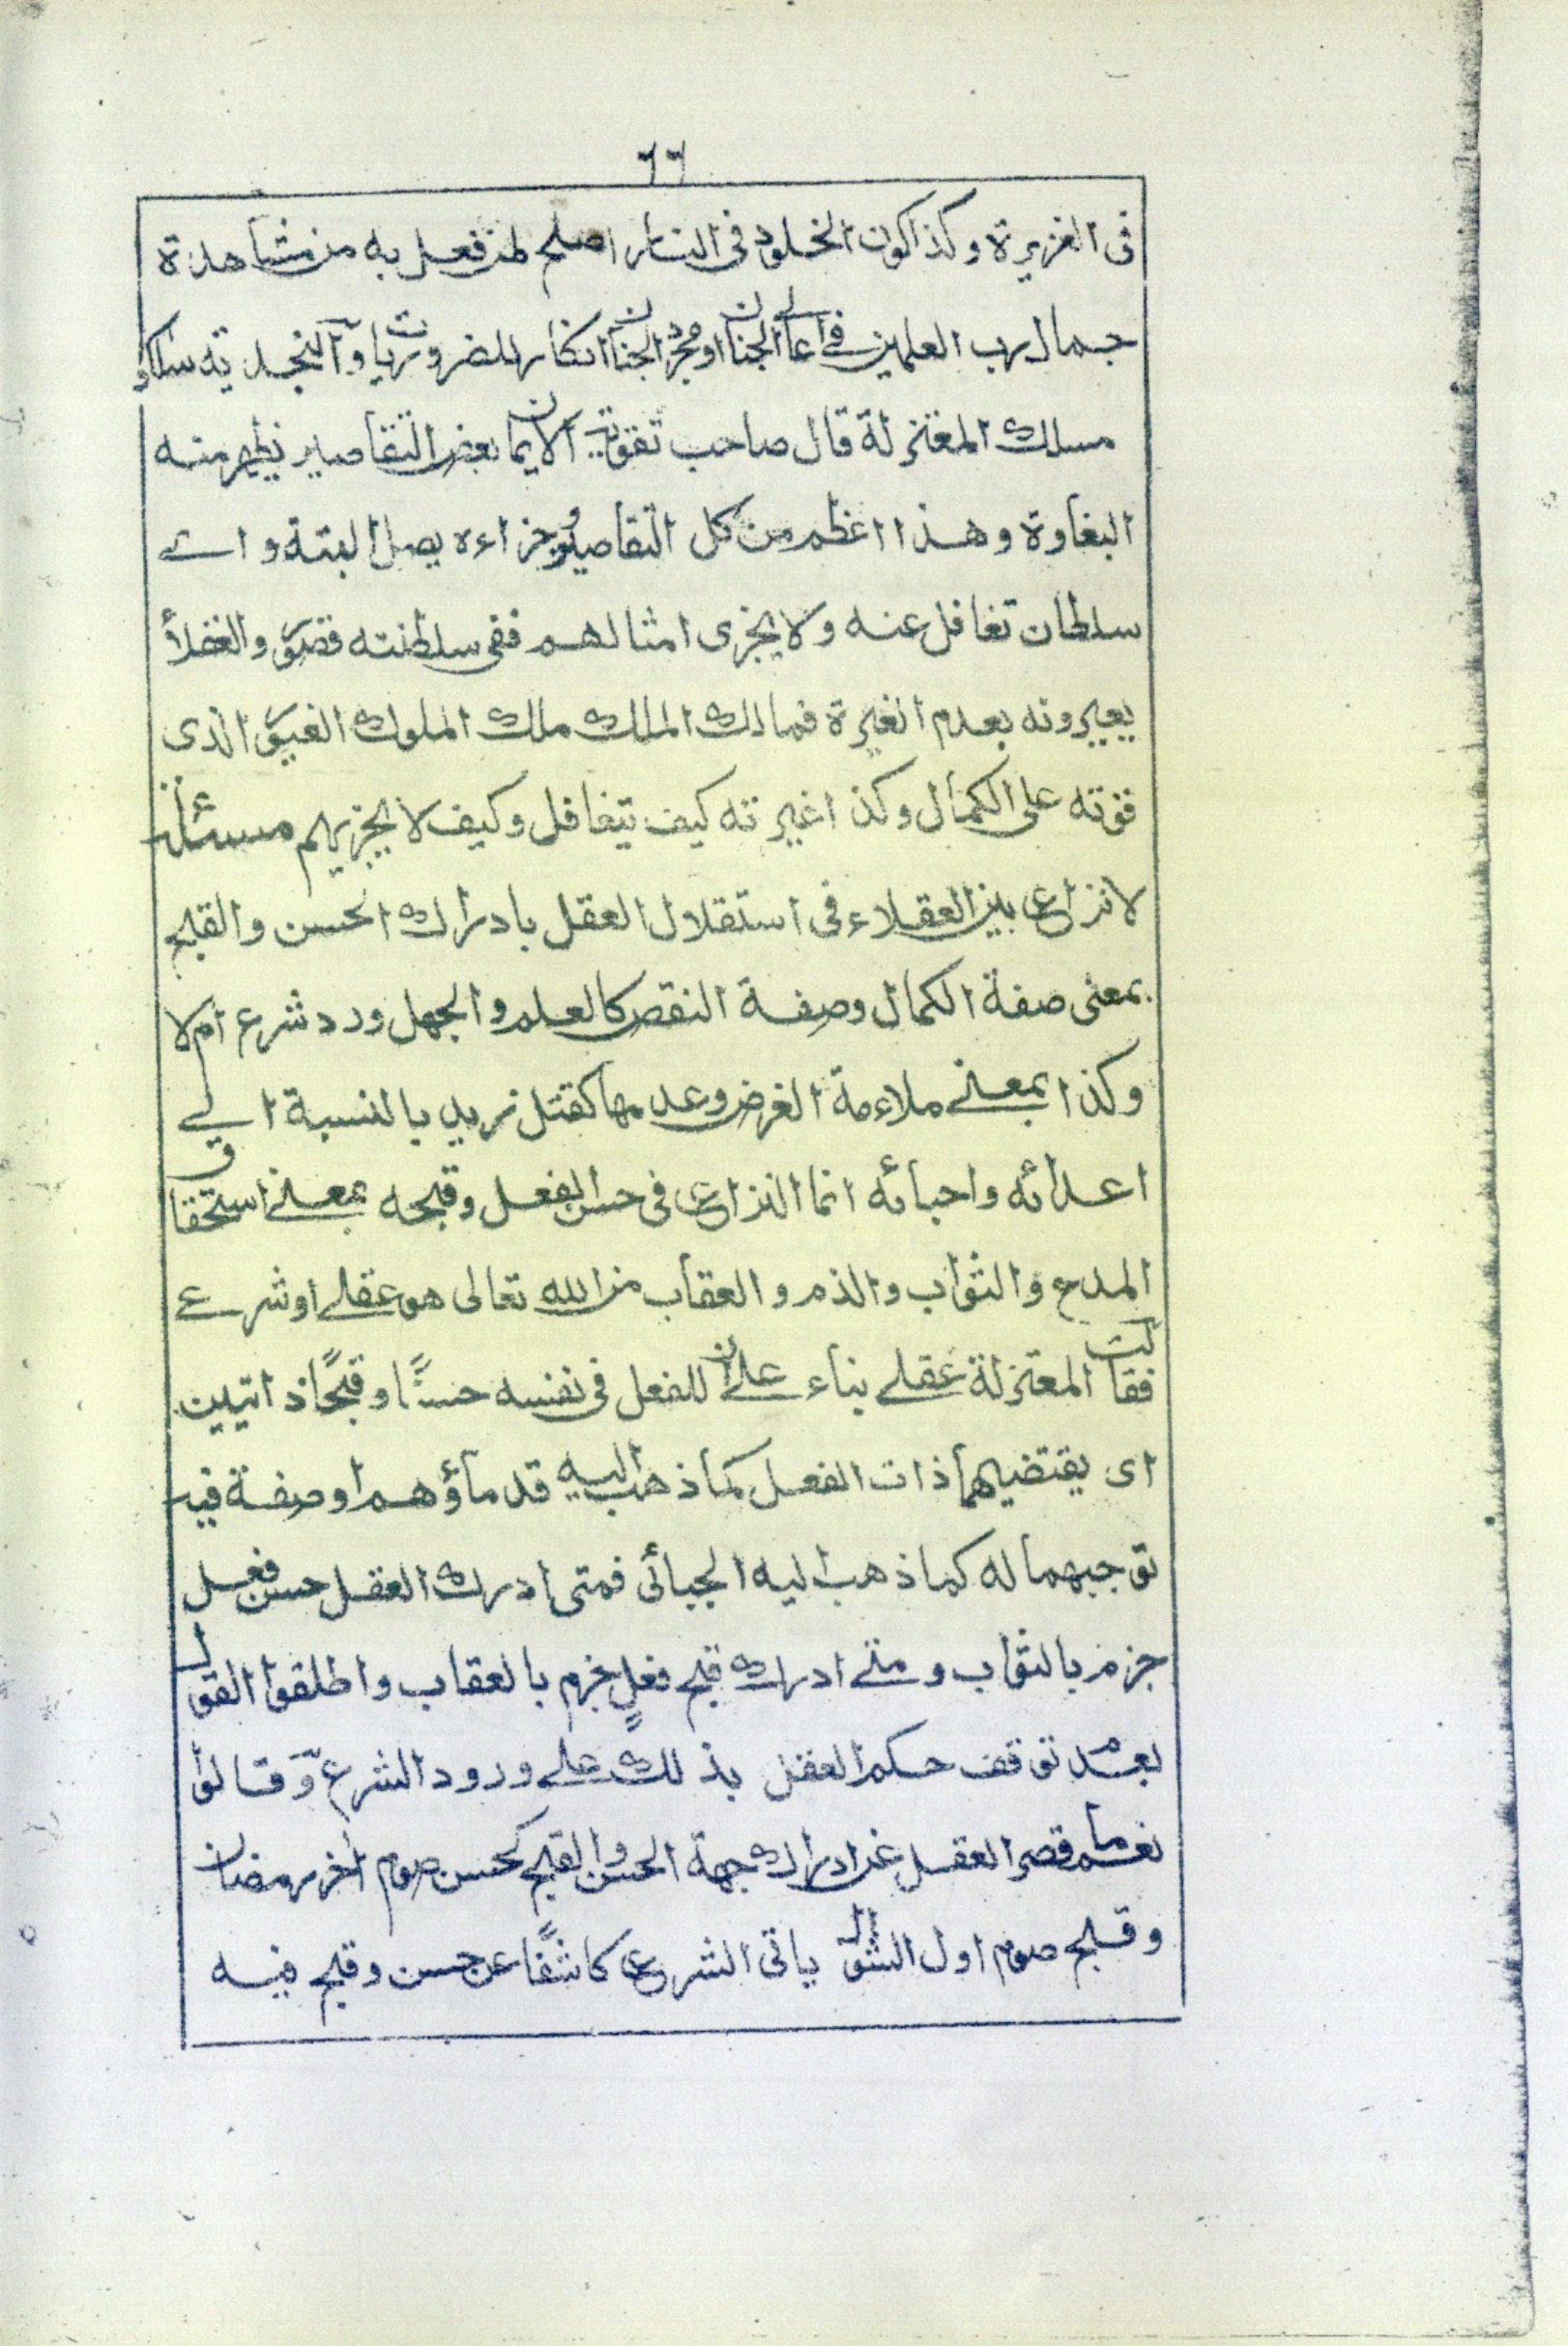 ٦٦
فى الغزيرة وكذا كون الخلود فى النار اصلح لمن فعل به من مشاهدة
جمال رب العلمين فى اعالى الجنان او مجرد الجنان انكار للضروريات والنجدية سلكوا
مسلك المعتزلة قال صاحب تقوية الايمان بعض التقاصير يظهر منه
البغاوة وهذا اعظم من كل التقاصير وجزاءه يصل البتة واى
سلطان تغافل عنه ولا يجزى امثالهم ففى سلطنته قصور والعقلأ
يعيرونه بعدم الغيرة فمالك الملك ملك الملوك الغيور الذى
قوته على الكمال وكذا غيرته كيف يتغافل وكيف لا يجزيهم مسئلة
لا نزاع بين العقلاء فى استقلال العقل بادراك الحسن والقبح
بمعنى صفة الكمال وصفة النقص كالعلم والجهل ورد شرع ام لا
وكذا بمعنى ملاءمة الغرض وعدمها كقتل زيد بالنسبة الى
اعدائه واحبائه انما النزاع فى حسن الفعل وقبحه بمعنى استحقاق
المدح والثواب والذم والعقاب من الله تعالى هو عقلى او شرعى
فقالت المعتزلة عقلى بناء على ان للفعل فى نفسه حسنًا وقبحًا ذاتيين
اى يقتضيهما ذات الفعل كما ذهب اليه قدماؤهم او صفة فيه
توجبهما له كما ذهب اليه الجبائى فمتى ادرك العقل حسن فعل
جزم بالثواب ومتى ادرك قبح فعلٍ جزم بالعقاب واطلقوا القول
بعدم توقف حكم العقل بذلك على ورود الشرع وقالوا
نعم ما قصر العقل عن ادراك جهة الحسن والقبح كحسن صوم اخر رمضان
وقبح صوم اول الشوال ياتى الشرع كاشفًا عن حسن وقبح فيه